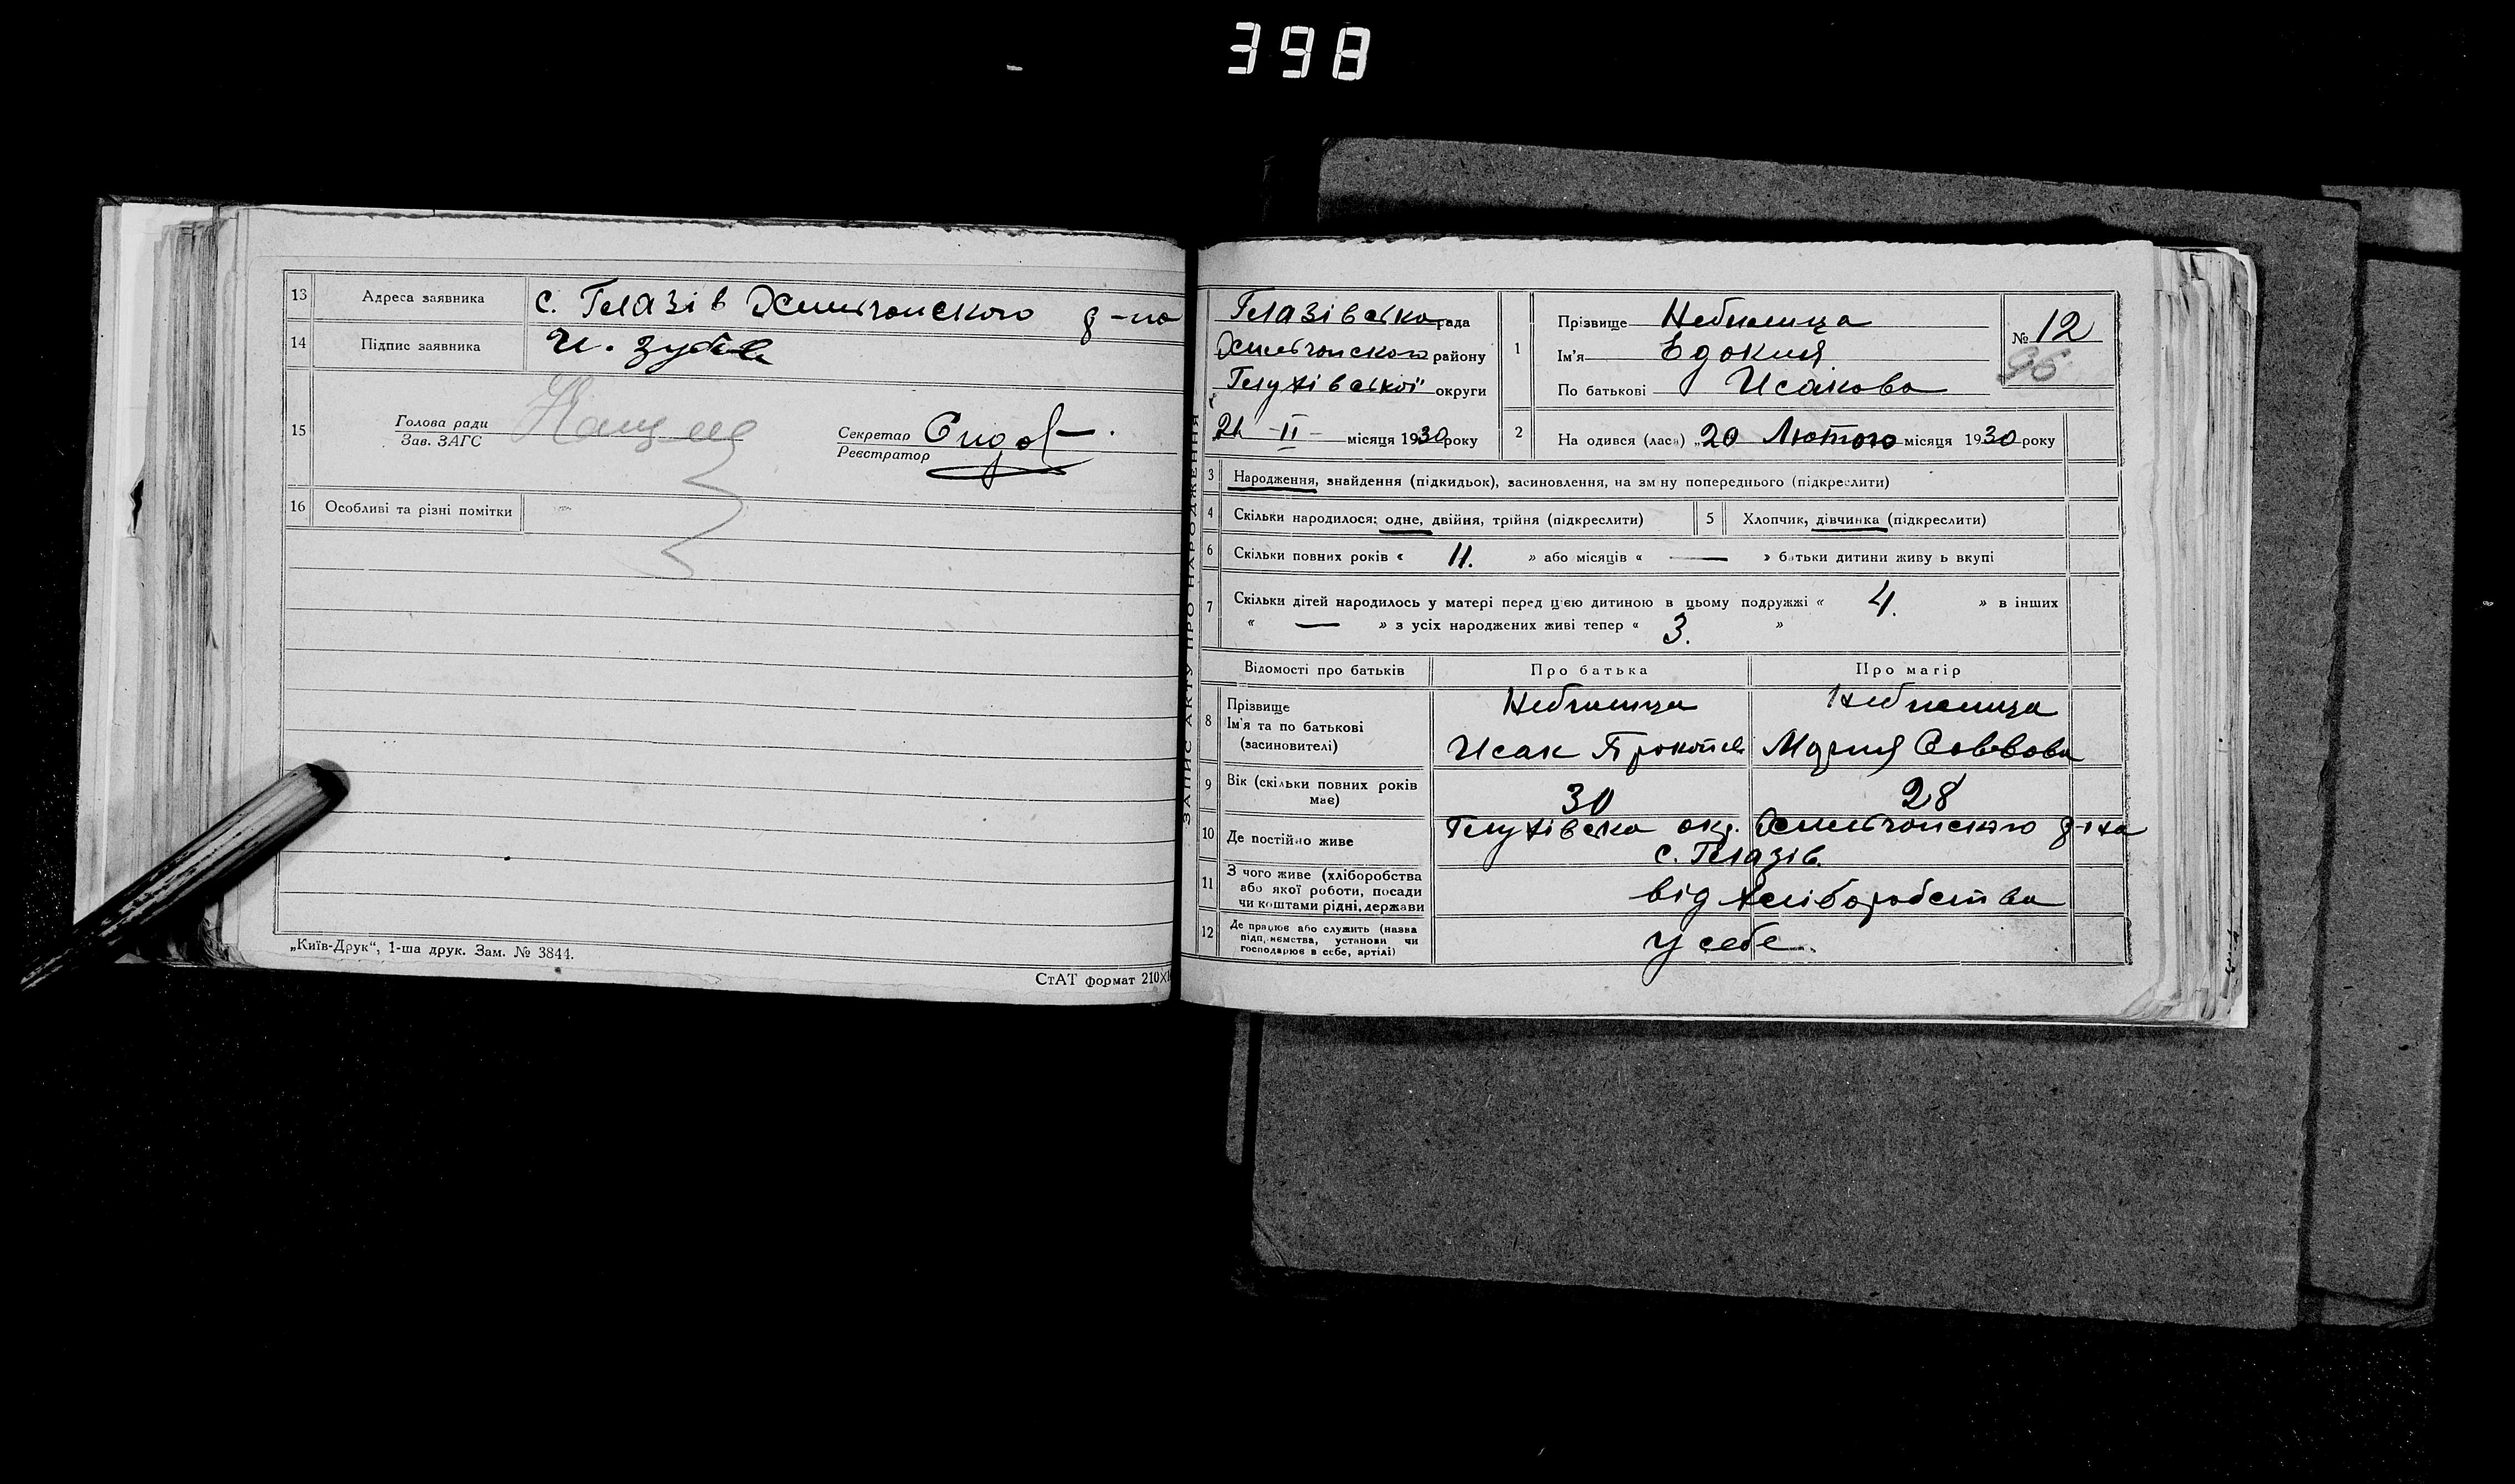 398
13 Адреса заявника с. Глазів Хильчанского р-на
14 Підпис заявника
15 Голова ради
Зав. ЗАГС
Секретар
Реєстратор
16 Особливі та різні помітки
„Київ-Друк“, 1-ша друк. Зам. № 3844.
СтАТ формат 210×
ЗАПИС АКТУ ПРО НАРОДЖЕННЯ
Глазівська рада
району
Глухівської округи
21 - II - місяця 1930 року
1 Прізвище Небилица
Ім'я Едокия
По батькові Исакова
№ 12
96
2 На одився (лася) „20 Лютого місяця 1930 року
3 Народження, знайдення (підкидьок), засиновлення, на зміну попереднього (підкреслити)
4 Скільки народилося: одне, двійня, трійня (підкреслити)
5 Хлопчик, дівчинка (підкреслити)
6 Скільки повних років « 11. » або місяців « — » батьки дитини живу ь вкупі
7 Скільки дітей народилось у матері перед цією дитиною в цьому подружжі « 4. » в інших
« — » з усіх народжених живі тепер « 3. »
Відомості про батьків Про батька Про матір
8 Прізвище Небилица Небилица
Ім'я та по батькові
(засиновителі) Исак Прокопов Мария Саввова
9 Вік (скільки повних років
має) 30 28
10 Де постійно живе Глухівска окр. р-на
с. Глазів.
11 З чого живе (хліборобства
або якої роботи, посади
чи коштами рідні, держави від хліборобства
12 Де працює або служить (назва
підприємства, установи чи
господарює в себе, артілі) у себе.